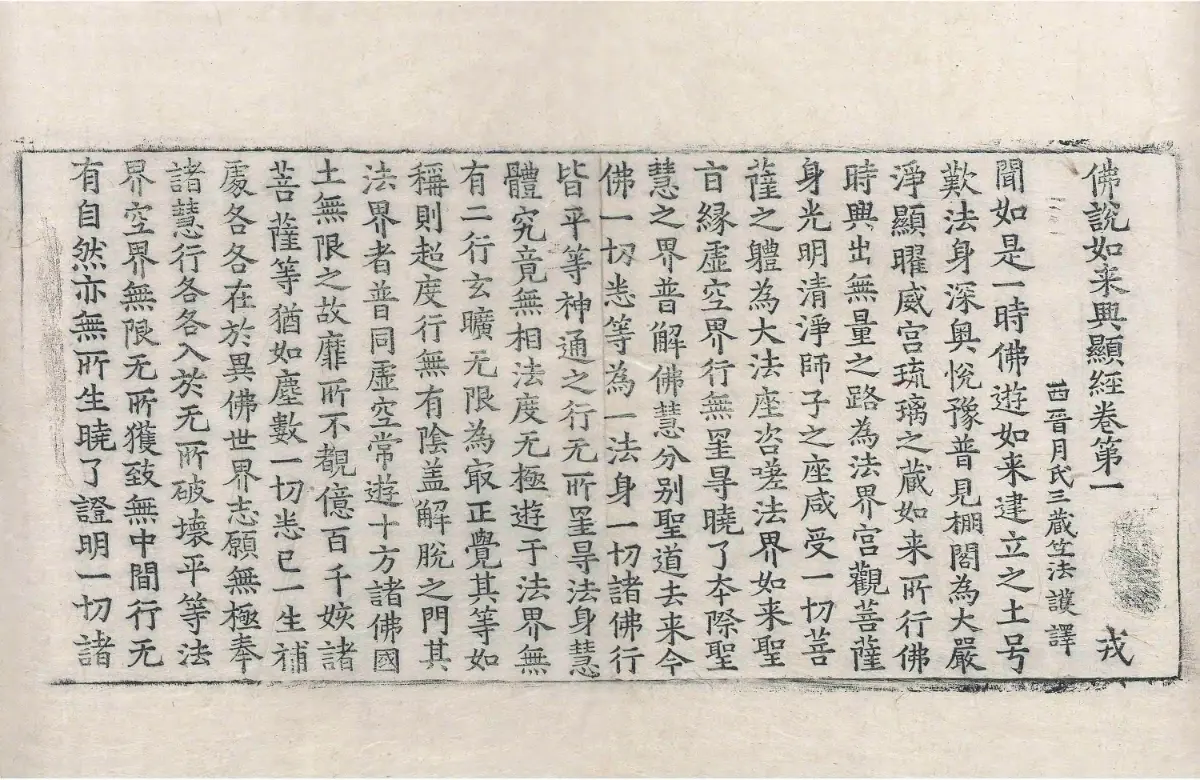 佛說如来興顯經卷第一 戎
西晋月氏三蔵竺法護 譯
聞如是一時佛遊如来建立之土号
歎法身深奥恱豫普見棚閣為大嚴
淨顯曜威宫琉璃之蔵如来所行佛
時興出無量之路為法界宫觀菩薩
身光明清淨師子之座咸受一切菩
薩之軆為大法座咨嗟法界如来聖
旨縁虚空界行無罣㝵曉了本際聖
慧之界普解佛慧分别聖道去来今
佛一切悉等為一法身一切諸佛行
皆平等神通之行无所罣㝵法身慧
體究竟無相法度无極遊于法界無
有二行玄曠无限為㝡正覺其等如
稱則超度行無有陰盖解脫之門其
法界者普同虚空常遊十方諸佛國
土無限之故靡所不覩億百千姟諸
菩薩等猶如塵數一切悉已一生補
處各各在於異佛世界志願無極奉
諸慧行各各入於无所破壞平等法
界空界無限无所獲致無中間行无
有自然亦無所生曉了證明一切諸